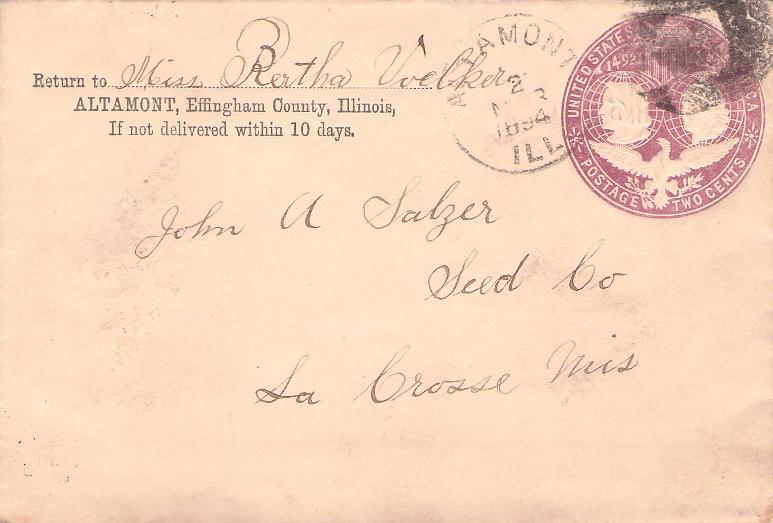 Return to Miss Bertha Voelker
ALTAMONT, Effingham County, Illinois,
If not delivered within 10 days.
ALTAMONT
2
1894
ILL
UNITED STATES
1492
POSTAGE TWO CENTS
John A Salzer
Seed Co
La Crosse Wis